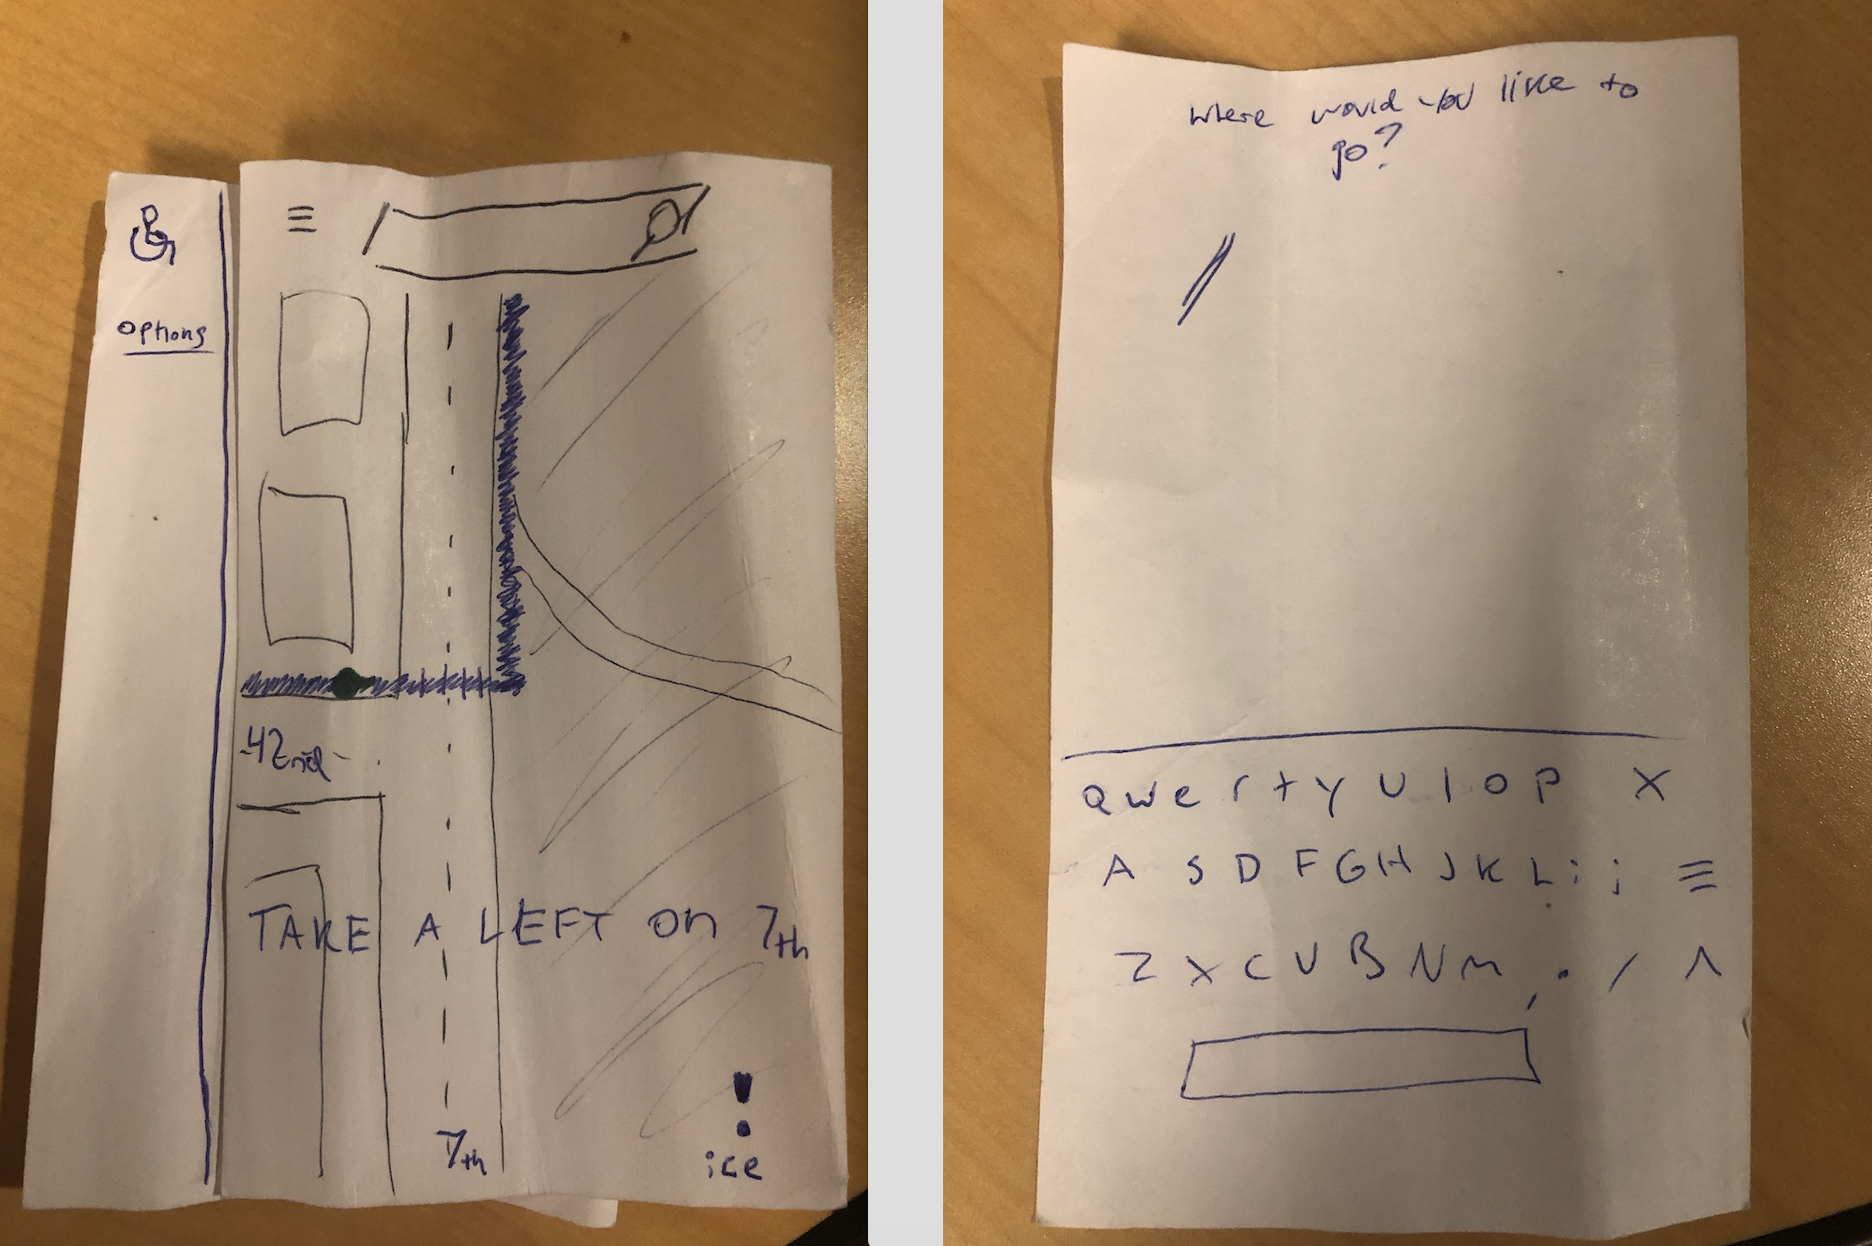 options
42nd
TAKE A LEFT on 7th
7th
!
ice
where would you like to
go?
Q w e r t y U I O P X
A S D F G H J K L : ;
Z X C V B N M , . / ^